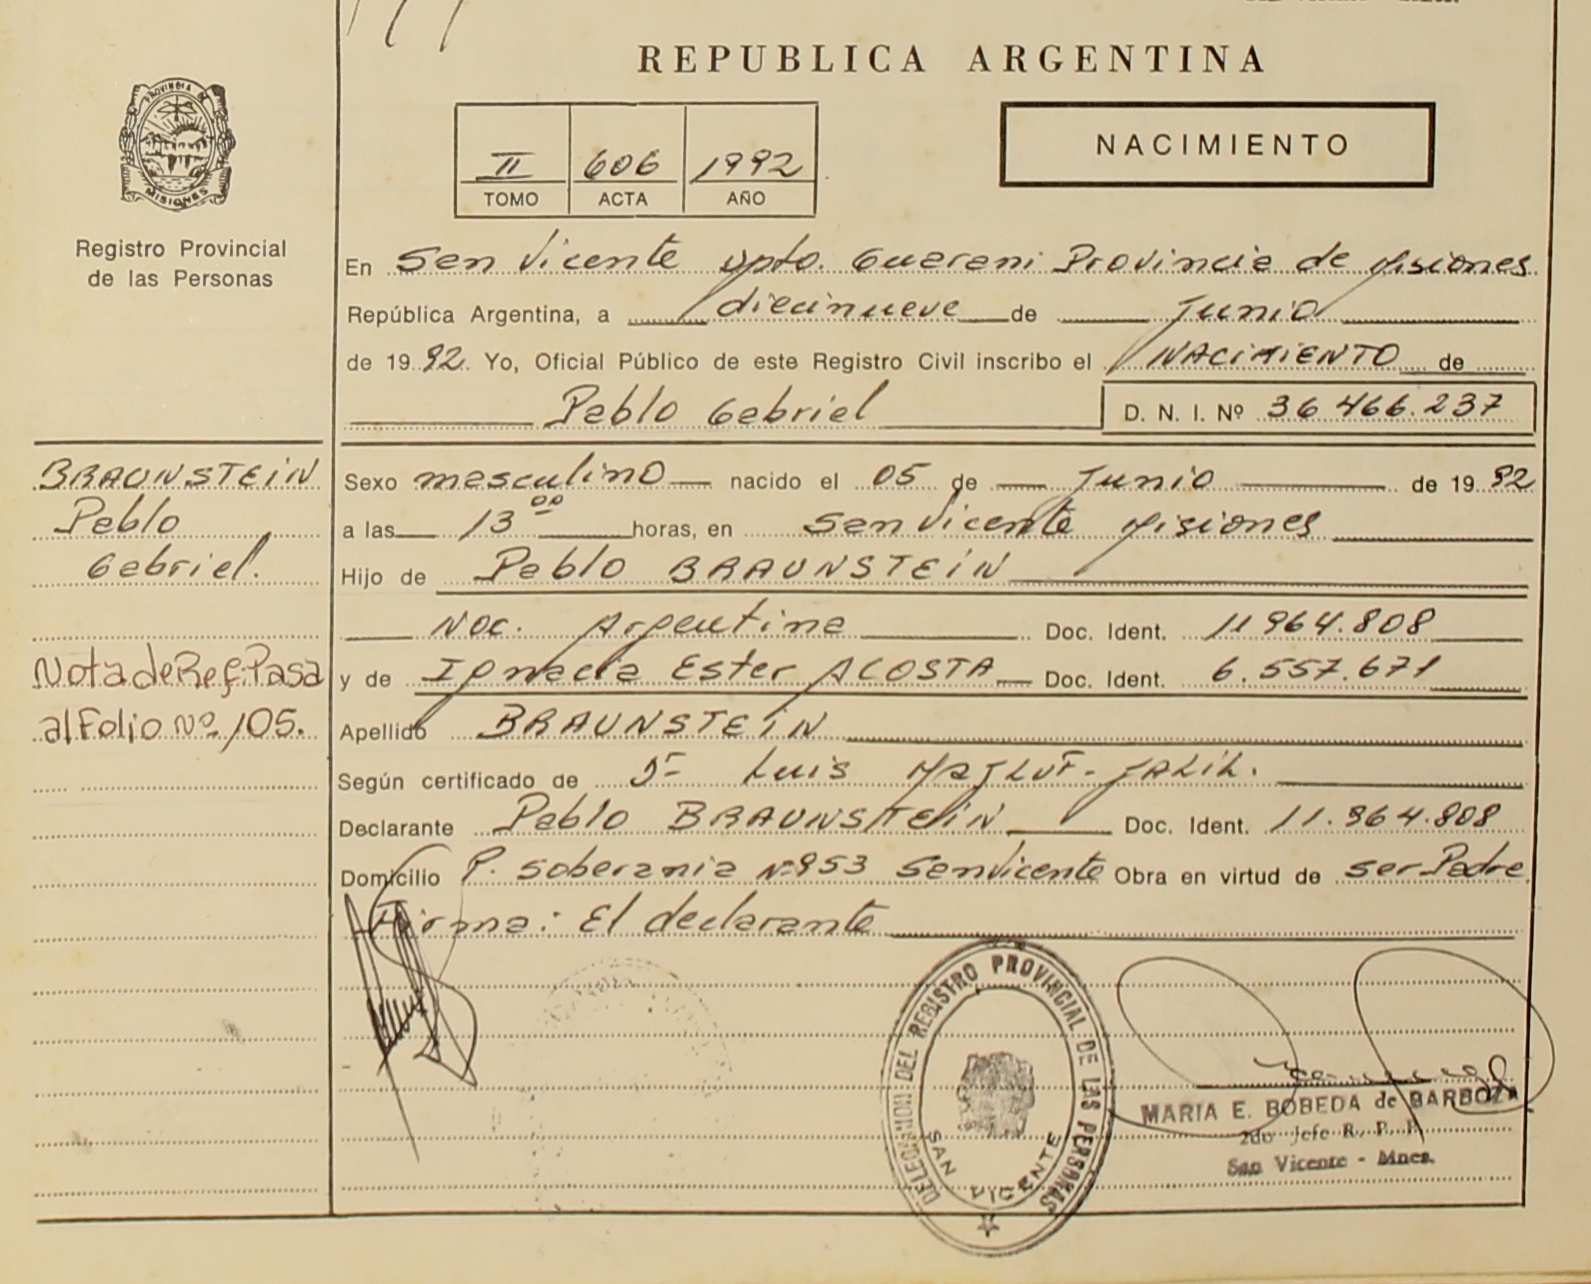 REPUBLICA ARGENTINA
PROVINCIA DE
MISIONES
Registro Provincial
de las Personas
II 606 1992
TOMO ACTA AÑO
NACIMIENTO
En San Vicente Dpto. Guarani Provincia de Misiones
República Argentina, a diecinueve de Junio
de 1992. Yo, Oficial Público de este Registro Civil inscribo el NACIMIENTO de
Pablo Gabriel D. N. I. Nº 36.466.237
BRAUNSTEIN
Pablo
Gabriel.
Nota de Ref. Pasa
al Folio Nº 105.
Sexo masculino nacido el 05 de Junio de 1992
a las 13 00 horas, en San Vicente Misiones
Hijo de Pablo BRAUNSTEIN
Nac. Argentina Doc. Ident. 11.964.808
y de Ignacia Ester ACOSTA Doc. Ident. 6.557.671
Apellido BRAUNSTEIN
Según certificado de Dr Luis MAJLUF-JALIL.
Declarante Pablo BRAUNSTEIN Doc. Ident. 11.964.808
Domicilio P. Soberania Nº 953 San Vicente Obra en virtud de ser Padre
Firma: El declarante
DELEGACION DEL REGISTRO PROVINCIAL DE LAS PERSONAS
SAN VICENTE
MARIA E. BOBEDA de BARBOZA
2do Jefe R. P. P.
San Vicente - Mnes.